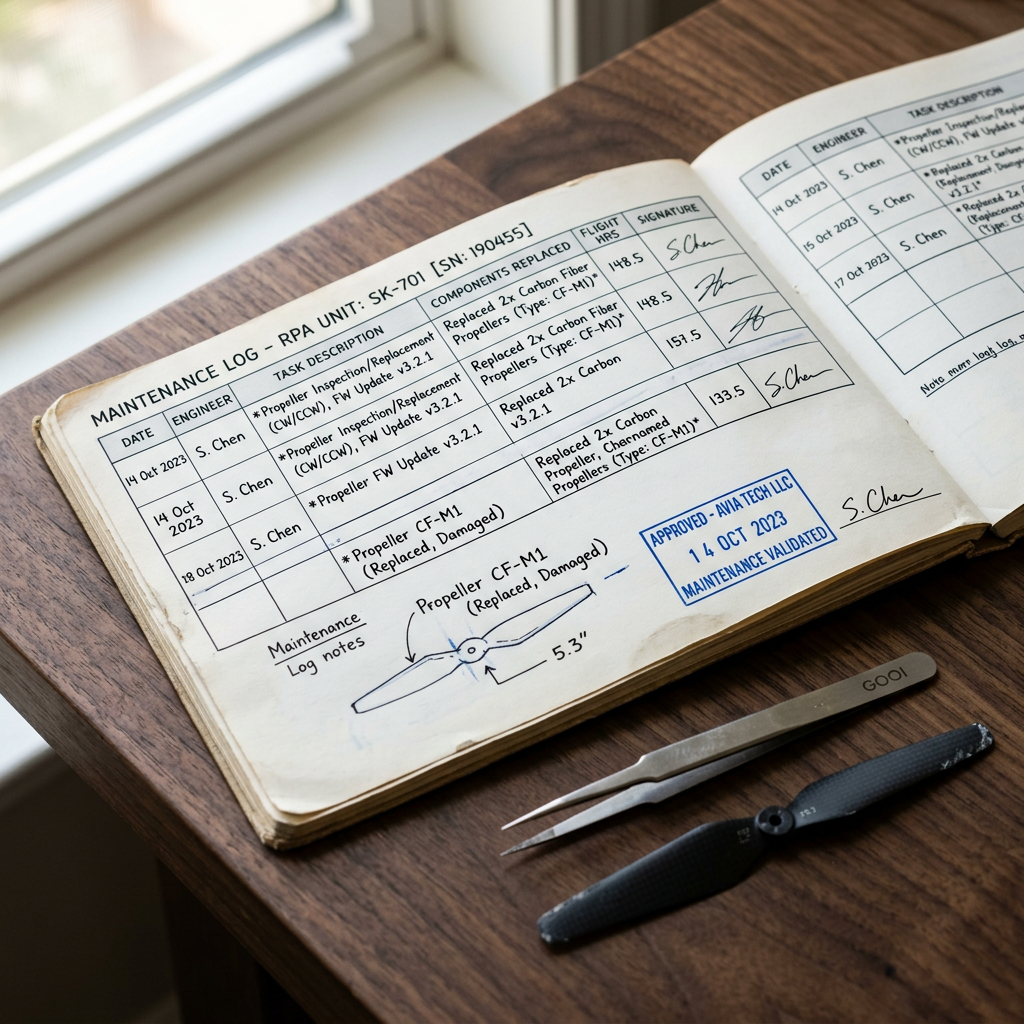 MAINTENANCE LOG – RPA UNIT: SK-701 [SN: 190455]
DATE ENGINEER TASK DESCRIPTION COMPONENTS REPLACED FLIGHT HRS SIGNATURE
14 Oct 2023 S. Chen *Propeller Inspection/Replacement
(CW/CCW), FW Update v3.2.1
Replaced 2x Carbon Fiber
Propellers (Type: CF-M1)*
148.5 S. Chen
14 Oct
2023
S. Chen *Propeller Inspection/Replacement
(CW/CCW), FW Update v3.2.1
Replaced 2x Carbon Fiber
Propellers (Type: CF-M1)*
148.5
18 Oct 2023 S. Chen *Propeller FW Update v3.2.1
Replaced 2x Carbon
v3.2.1
157.5
*Propeller CF-M1
(Replaced, Damaged)
Replaced 2x Carbon
Propeller, Chernamed
Propellers (Type: CF-M1)*
133.5 S. Chen
Maintenance
Log notes
Propeller CF-M1
(Replaced, Damaged)
5.3"
APPROVED - AVIA TECH LLC
14 OCT 2023
MAINTENANCE VALIDATED
S. Chen
DATE ENGINEER TASK DESCRIPTION
14 Oct 2023 S. Chen *Propeller Inspection/Replac
(CW/CCW), FW Update v3
15 Oct 2023 S. Chen *Replaced 2x Carbon
(Replacement, Damag
v3.2.1*
17 Oct 2023 S. Chen *Replaced 2x
(Replacement
(Type: CF-
Note more log
GOOI